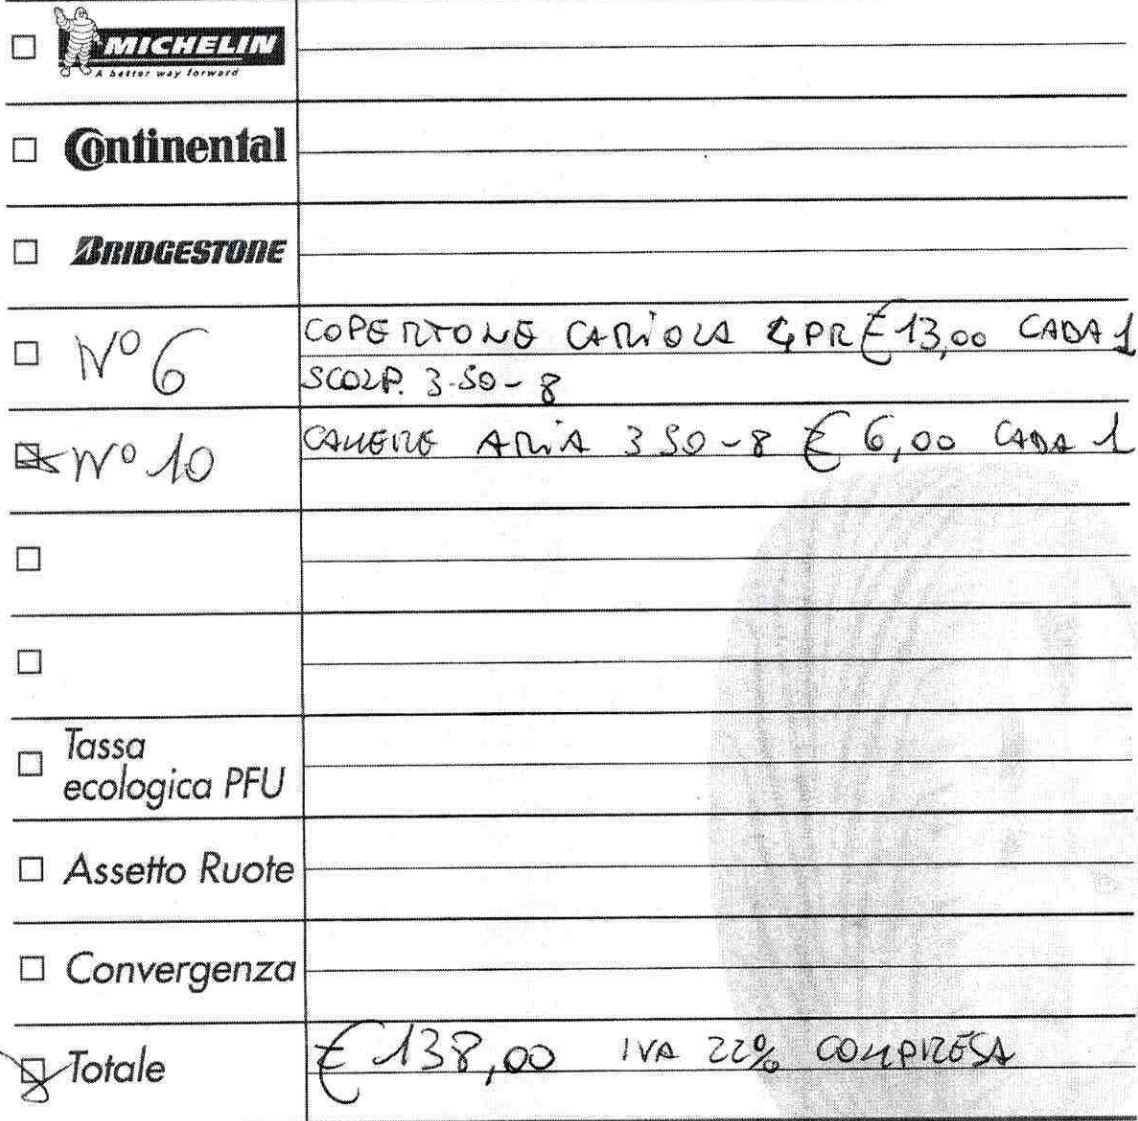 MICHELIN
A better way forward
Continental
BRIDGESTONE
N° 6 COPERTONE CARIOLA 4PR € 13,00 CADA 1
SCOLP. 3-50-8
N° 10 CAMERE ARIA 350-8 € 6,00 CADA 1
Tassa
ecologica PFU
Assetto Ruote
Convergenza
Totale € 138,00 IVA 22% COMPRESA